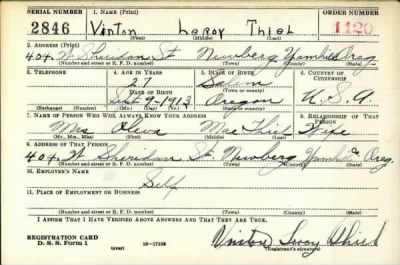 SERIAL NUMBER 1. NAME (Print) ORDER NUMBER
2846 Vinton LeRoy Thiel 1120
(First) (Middle) (Last)
2. ADDRESS (Print)
404 W. Sheridan St. Newberg Yamhill Oreg.
(Number and street or R. F. D. number) (Town) (County) (State)
3. TELEPHONE 4. AGE IN YEARS 5. PLACE OF BIRTH 6. COUNTRY OF CITIZENSHIP
27 Salem
DATE OF BIRTH (Town or county)
Sept 9-1913 Oregon U.S.A.
(Exchange) (Number) (Mo.) (Day) (Yr.) (State or country)
7. NAME OF PERSON WHO WILL ALWAYS KNOW YOUR ADDRESS 8. RELATIONSHIP OF THAT PERSON
Mrs Mae Thiel Wife
(Mr., Mrs., Miss) (First) (Middle) (Last)
9. ADDRESS OF THAT PERSON
404 W Sheridan St. Newberg Yamhill Oreg.
(Number and street or R. F. D. number) (Town) (County) (State)
10. EMPLOYER'S NAME
Self
11. PLACE OF EMPLOYMENT OR BUSINESS
(Number and street or R. F. D. number) (Town) (County) (State)
I AFFIRM THAT I HAVE VERIFIED ABOVE ANSWERS AND THAT THEY ARE TRUE.
REGISTRATION CARD
D. S. S. Form 1 (over) 16-17105 Vinton Leroy Thiel
(Registrant's signature)